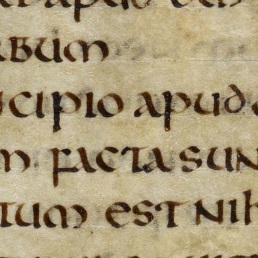 apud
rbum
cipio apud
m facta sun
tum est nih